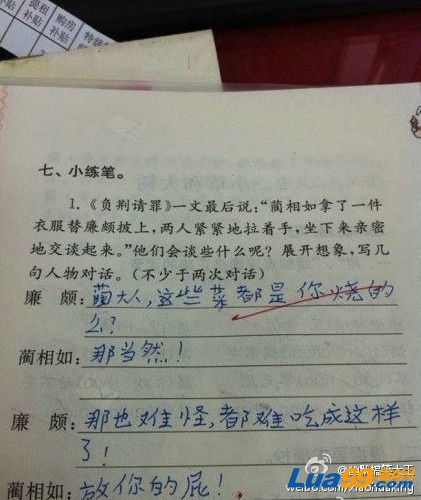 提租
补贴
购房
补贴
补贴
七、小练笔。
1.《负荆请罪》一文最后说:“蔺相如拿了一件
衣服替廉颇披上,两人紧紧地拉着手,坐下来亲密
地交谈起来。”他们会谈些什么呢?展开想象,写几
句人物对话。(不少于两次对话)
廉 颇:蔺大人,这些菜都是你烧的
么?
蔺相如:那当然!
廉 颇:那也难怪,都难吃成这样
了!
蔺相如:放你的屁!
weibo.com/xiaohuaking
Lua99.com